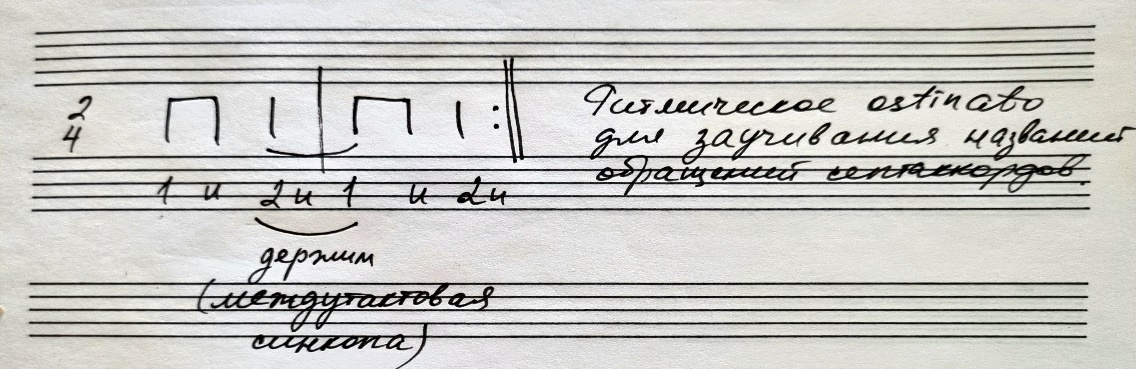 2
4
1 и 2и 1 и 2и
держим
(междутактовая
синкопа)
Ритмическое ostinato
для заучивания названий
обращений септаккордов.